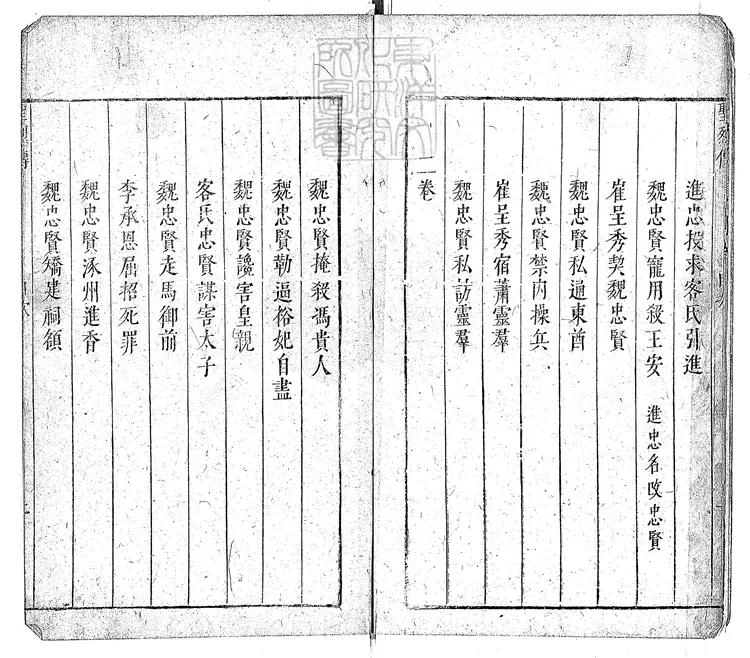 進忠投求客氏引進
魏忠賢寵用殺王安 進忠名改忠賢
崔呈秀契魏忠賢
魏忠賢私通東酋
魏忠賢禁內操兵
崔呈秀宿蕭靈羣
魏忠賢私訪靈羣
二卷
魏忠賢掩殺馮貴人
魏忠賢勒逼裕妃自盡
魏忠賢讒害皇親
客氏忠賢謀害太子
魏忠賢走馬御前
李承恩屈招死罪
魏忠賢涿州進香
魏忠賢矯建祠額